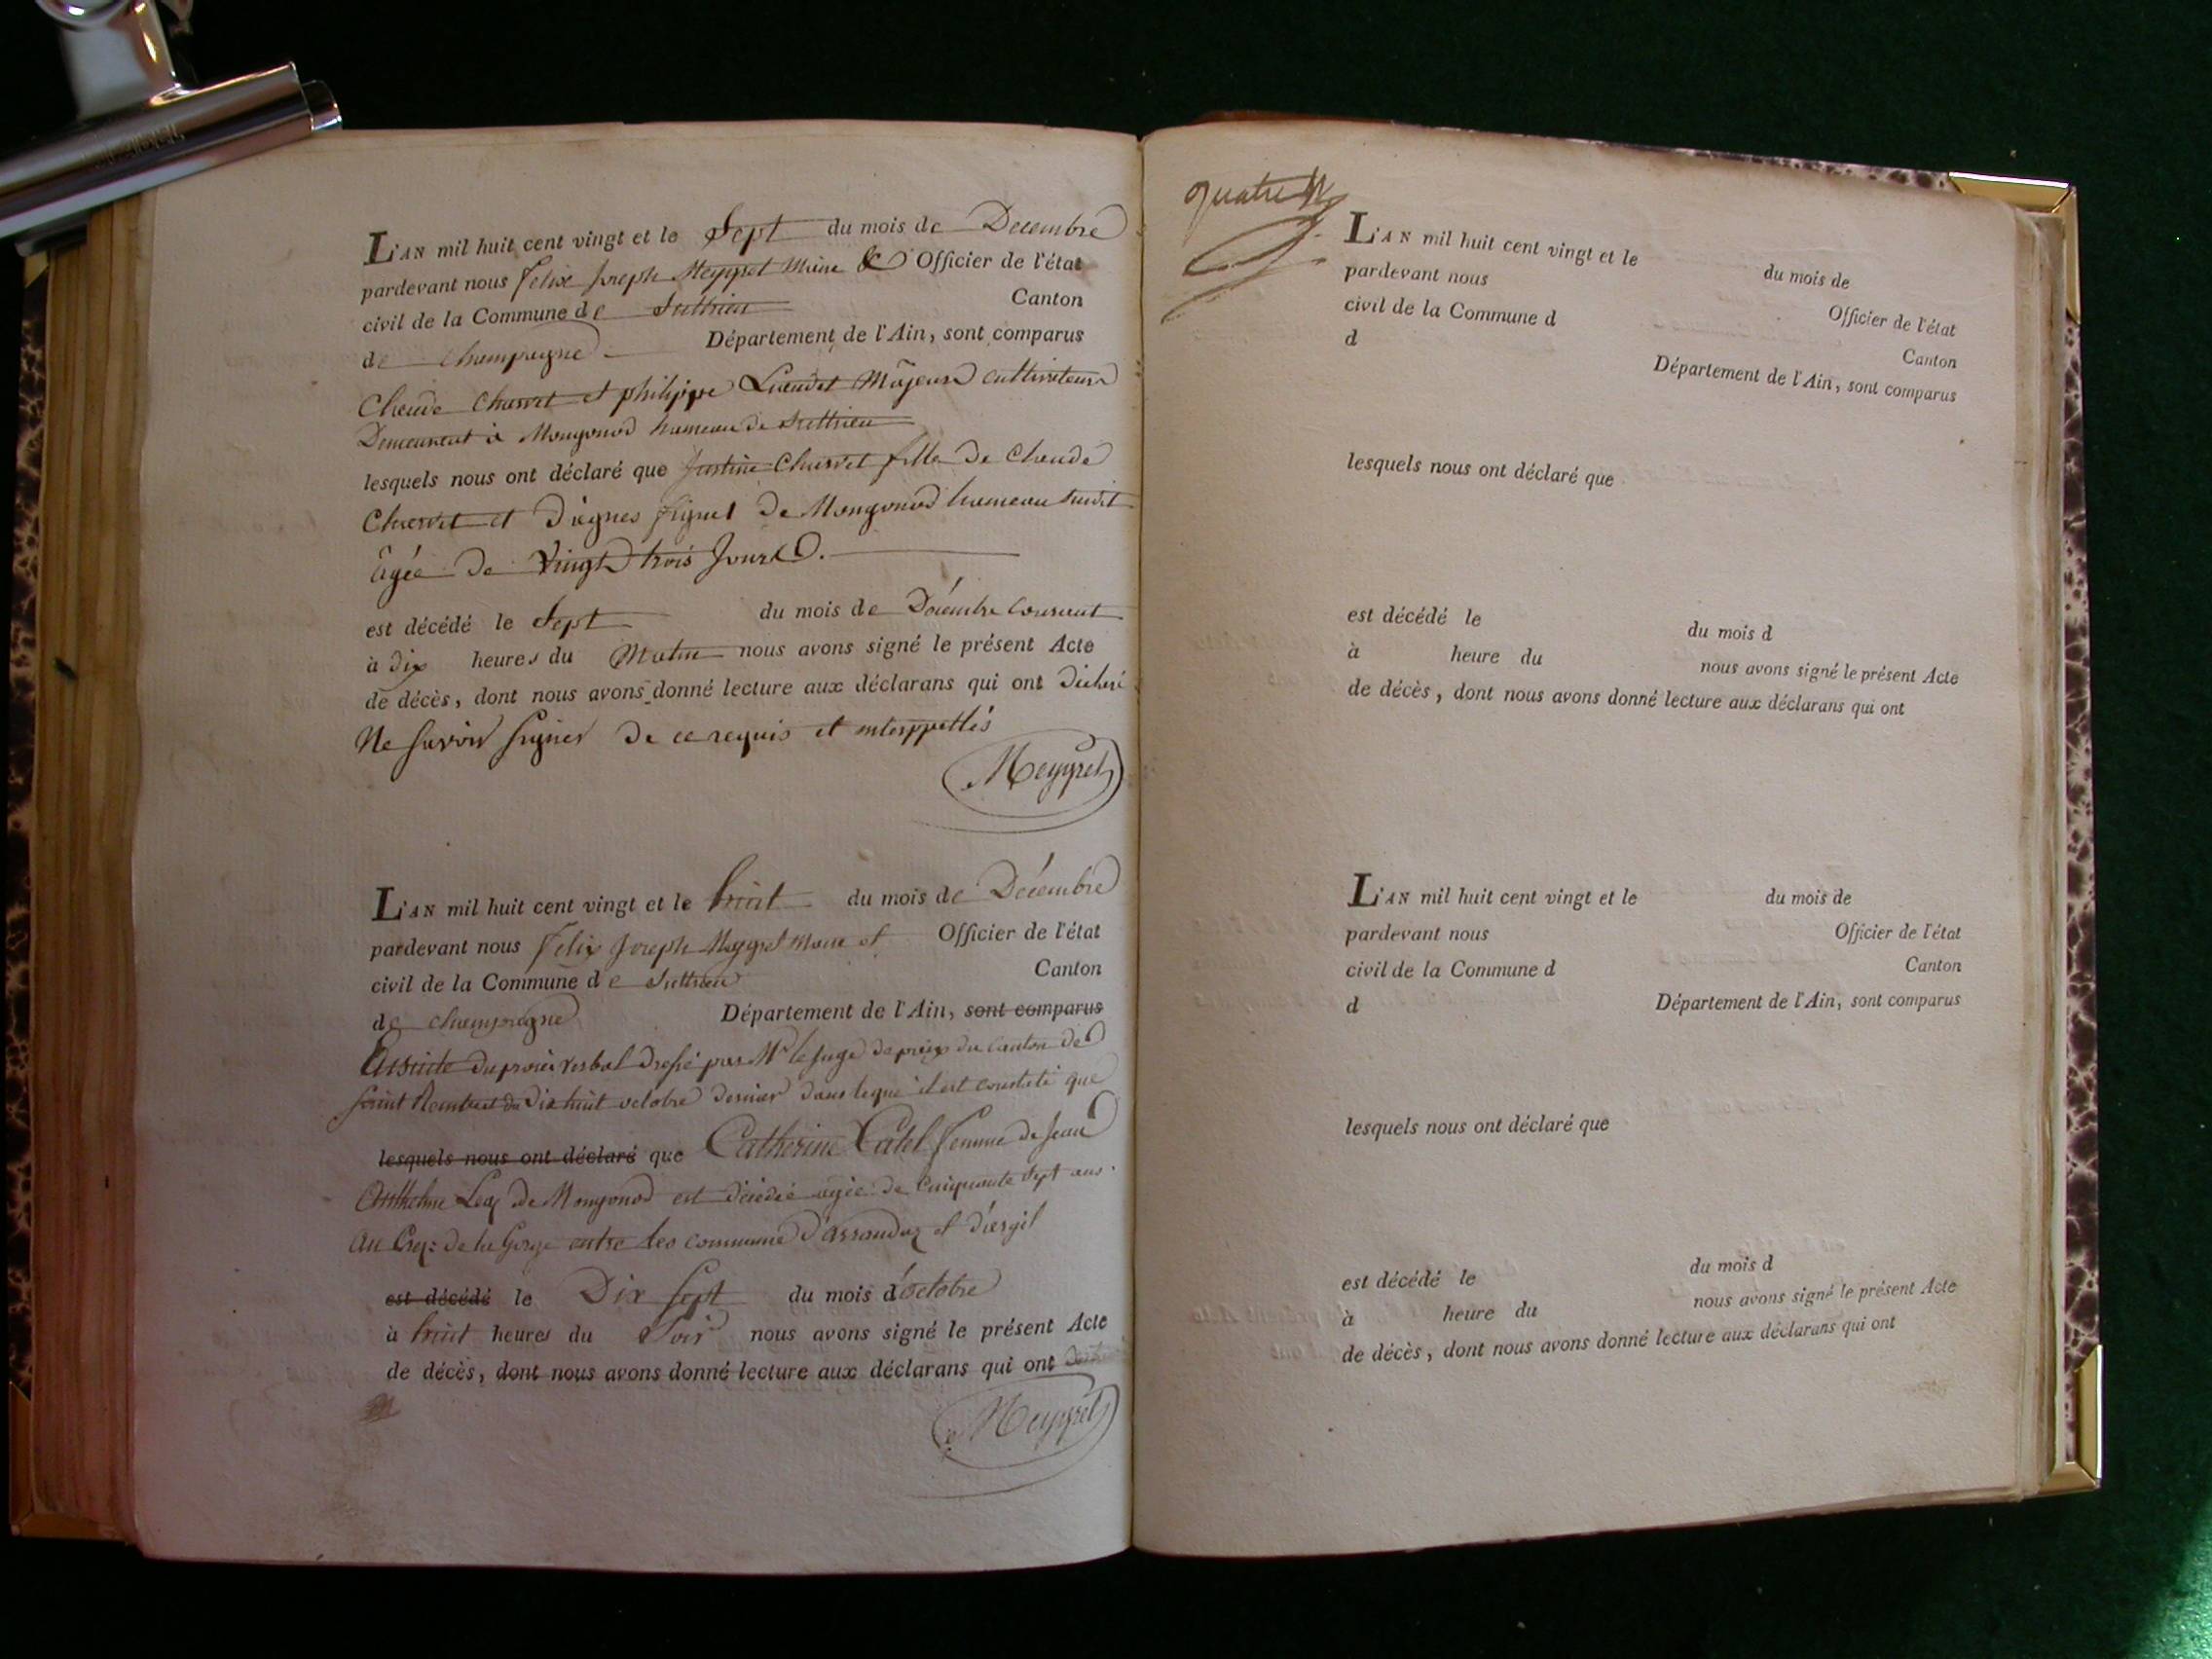 L'AN mil huit cent vingt et le Sept du mois de Decembre
pardevant nous Felix Joseph Meygret Maire & Officier de l'état
civil de la Commune de Suthrieu Canton
de Champagne Département de l'Ain, sont comparus
Claude Charvet et philippe Majeurs cultivateurs
Demeurant à Mongonod hameau de Suthrieu
lesquels nous ont déclaré que Justine Charvet fille de Claude
Charvet et d'agnes de Mongonod hameau susdit
âgée de Vingt trois Jours.
est décédé le Sept du mois de Décembre courant
à dix heures du Matin nous avons signé le présent Acte
de décès, dont nous avons donné lecture aux déclarans qui ont déclaré
Ne savoir signer de ce requis et interppellés
Meygret
L'AN mil huit cent vingt et le huit du mois de Décembre
pardevant nous Felix Joseph Meygret Maire et Officier de l'état
civil de la Commune de Suthrieu Canton
de champagne Département de l'Ain, sont comparus
du procès verbal dressé par Mr le Juge de paix du Canton de
Saint Rambert du Dix huit octobre dernier dans leque il est constaté que
lesquels nous ont déclaré que Catherine femme de Jean
Anthelme de Mongonod est décédée agée de Cinquante Sept ans
au de la Gorge entre les commune d'arrandaz et d'
est décédé le Dix Sept du mois d'octobre
à huit heures du Soir nous avons signé le présent Acte
de décès, dont nous avons donné lecture aux déclarans qui ont
Meygret
quatre
L'AN mil huit cent vingt et le du mois de
pardevant nous Officier de l'état
civil de la Commune d Canton
d Département de l'Ain, sont comparus
lesquels nous ont déclaré que
est décédé le du mois d
à heure du nous avons signé le présent Acte
de décès, dont nous avons donné lecture aux déclarans qui ont
L'AN mil huit cent vingt et le du mois de
pardevant nous Officier de l'état
civil de la Commune d Canton
d Département de l'Ain, sont comparus
lesquels nous ont déclaré que
est décédé le du mois d
à heure du nous avons signé le présent Acte
de décès, dont nous avons donné lecture aux déclarans qui ont